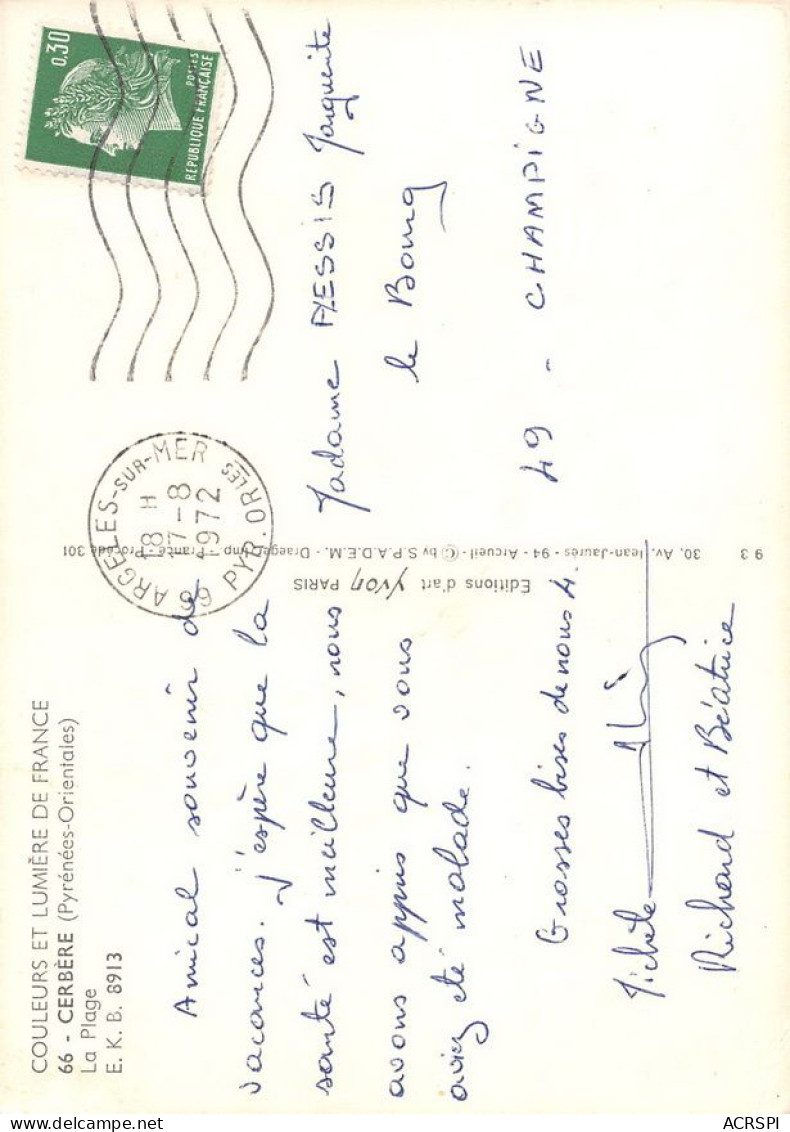 COULEURS ET LUMIÈRE DE FRANCE
66 - CERBÈRE (Pyrénées-Orientales)
La Plage
E. K. B. 8913
Amical souvenir de
vacances. J'espère que la
santé est meilleure, nous
avons appris que vous
aviez été malade.
Grosses bises de nous 4.
Michèle
Richard et Béatrice
Editions d'art Yvon PARIS
30, Av. Jean-Jaurès - 94 - Arcueil - © by S.P.A.D.E.M. - Draeger, Imp. - France - Procédé 301
9 3
ARGELES-SUR-MER
18 H
17-8
1972
69 PYR. ORLES
0,30
POSTES
REPUBLIQUE FRANÇAISE
Madame PLESSIS Marguerite
le Bourg
49 - CHAMPIGNÉ
ACRSPI